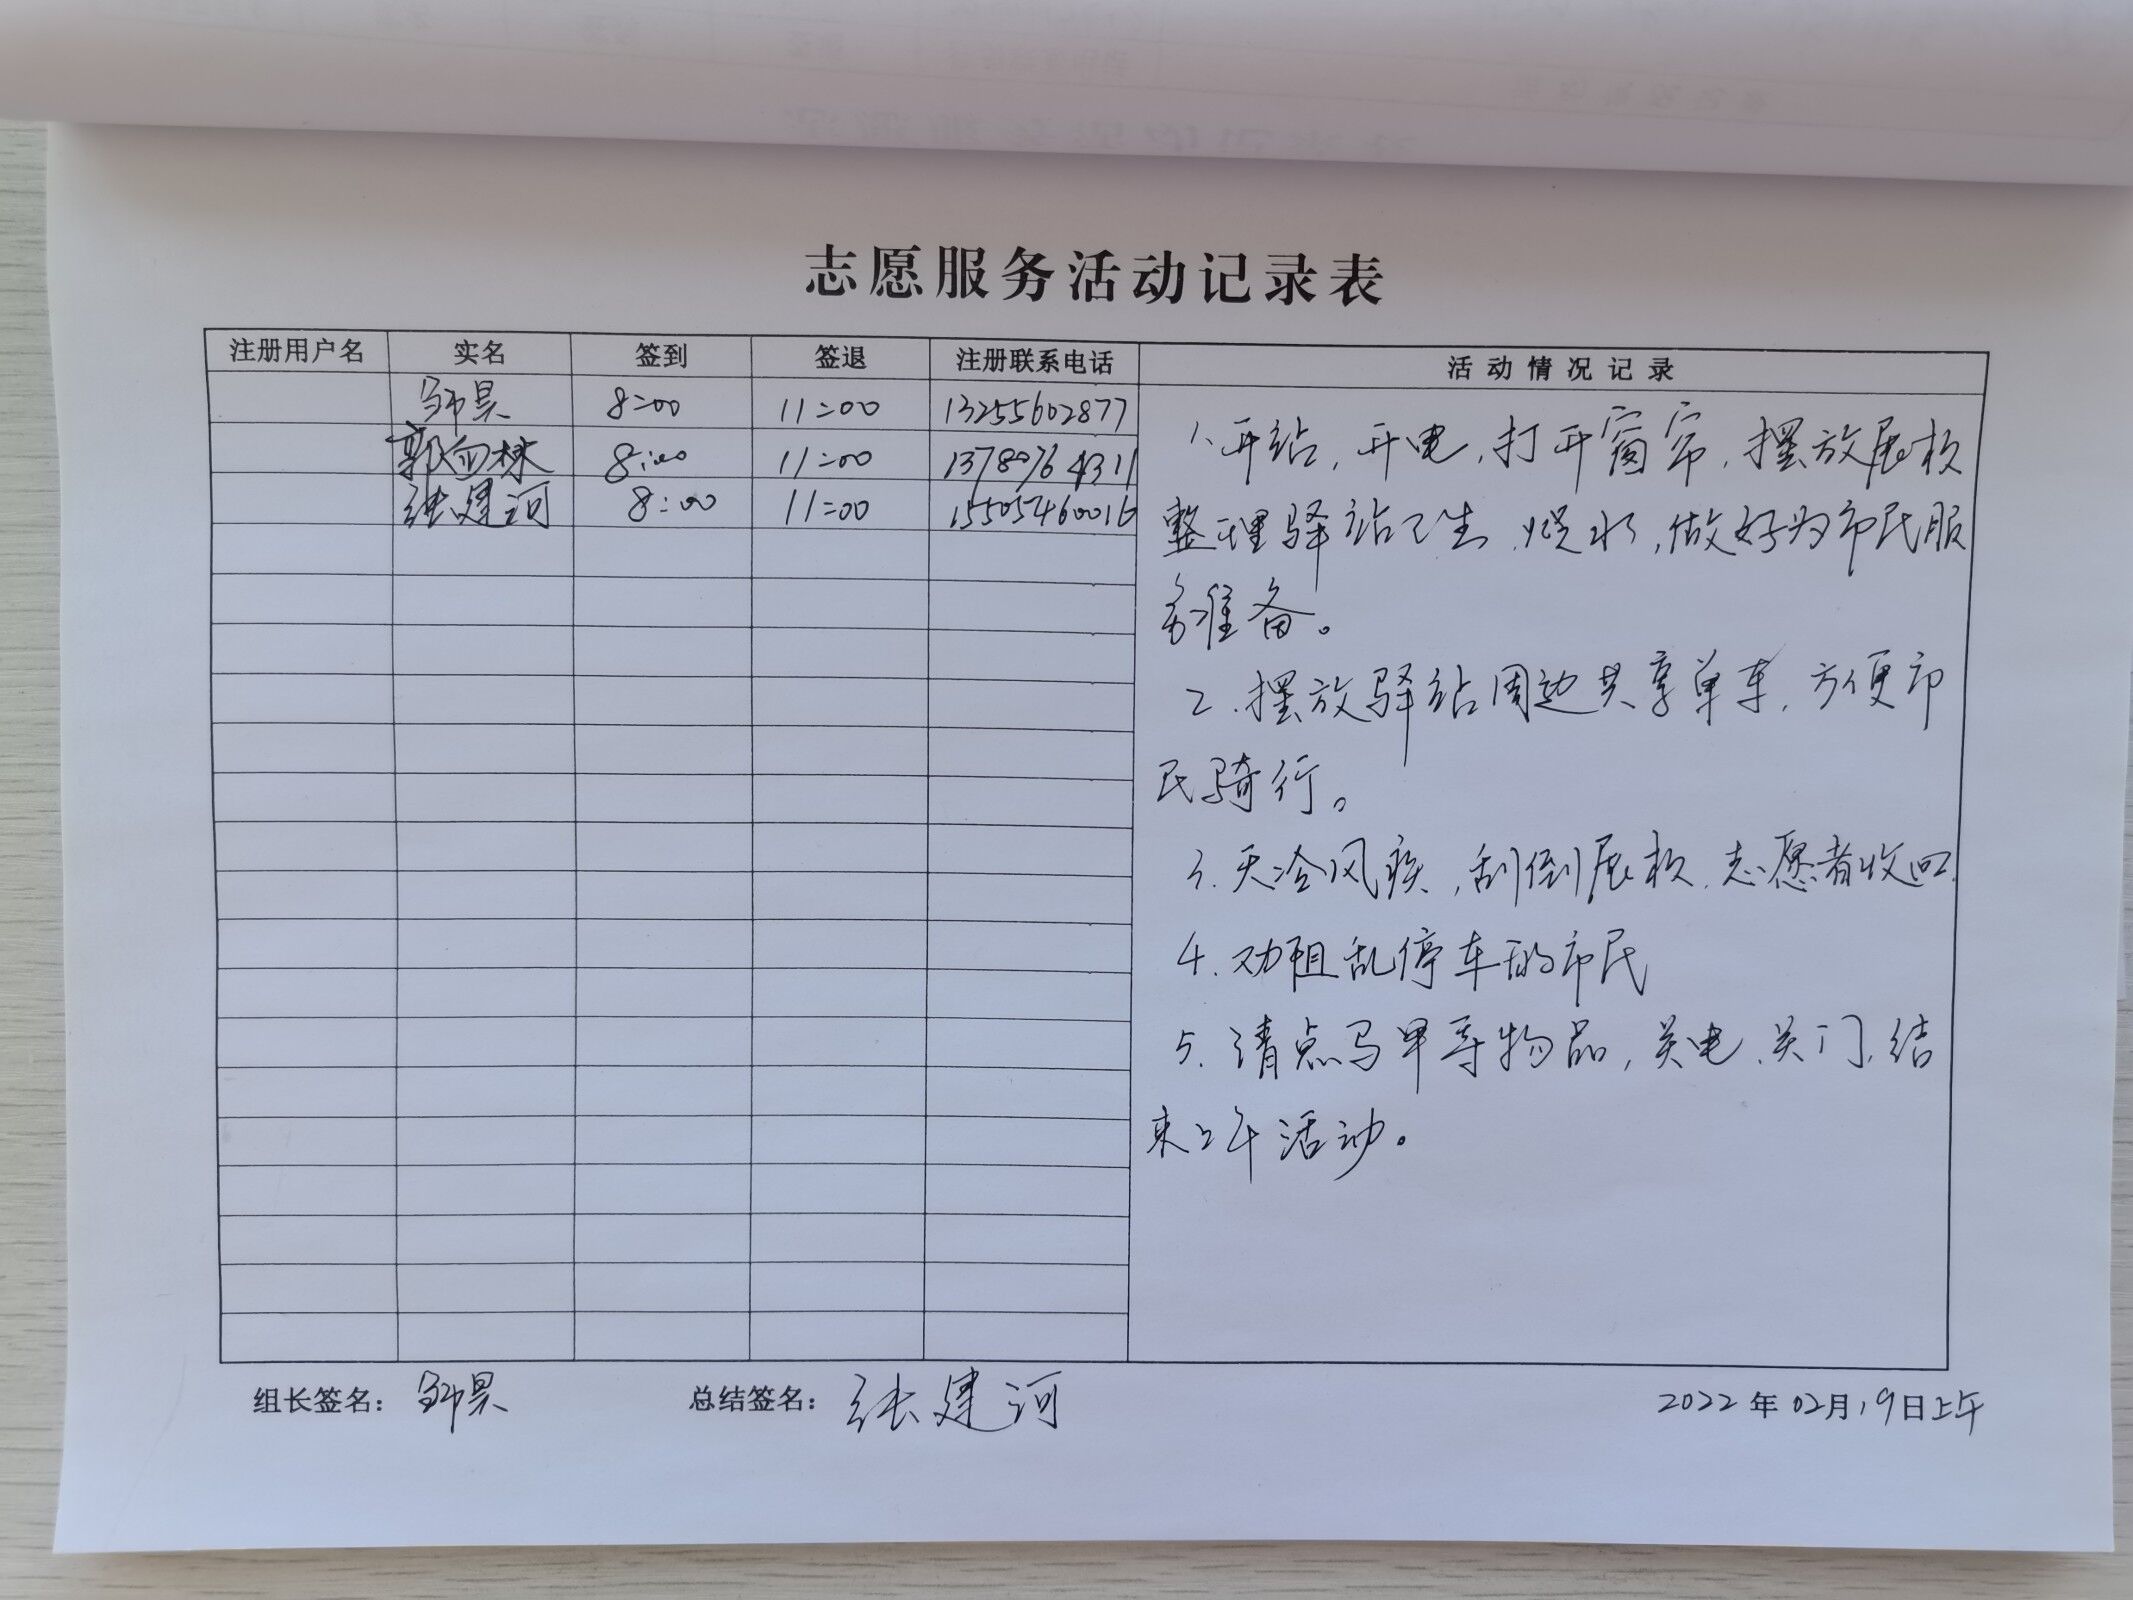 志愿服务活动记录表
注册用户名 实名 签到 签退 注册联系电话 活动情况记录
8:00 11:00 13255602877
8:00 11:00 13780764311
张建河 8:00 11:00 15505460016
1、开站,开电,打开窗帘,摆放展板
整理驿站卫生,烧水,做好为市民服
务准备。
2.摆放驿站周边共享单车,方便市
民骑行。
3.天冷风疾,刮倒展板,志愿者收回.
4.劝阻乱停车的市民
5.清点马甲等物品,关电、关门,结
束上午活动。
组长签名: 总结签名:张建河 2022年02月19日上午